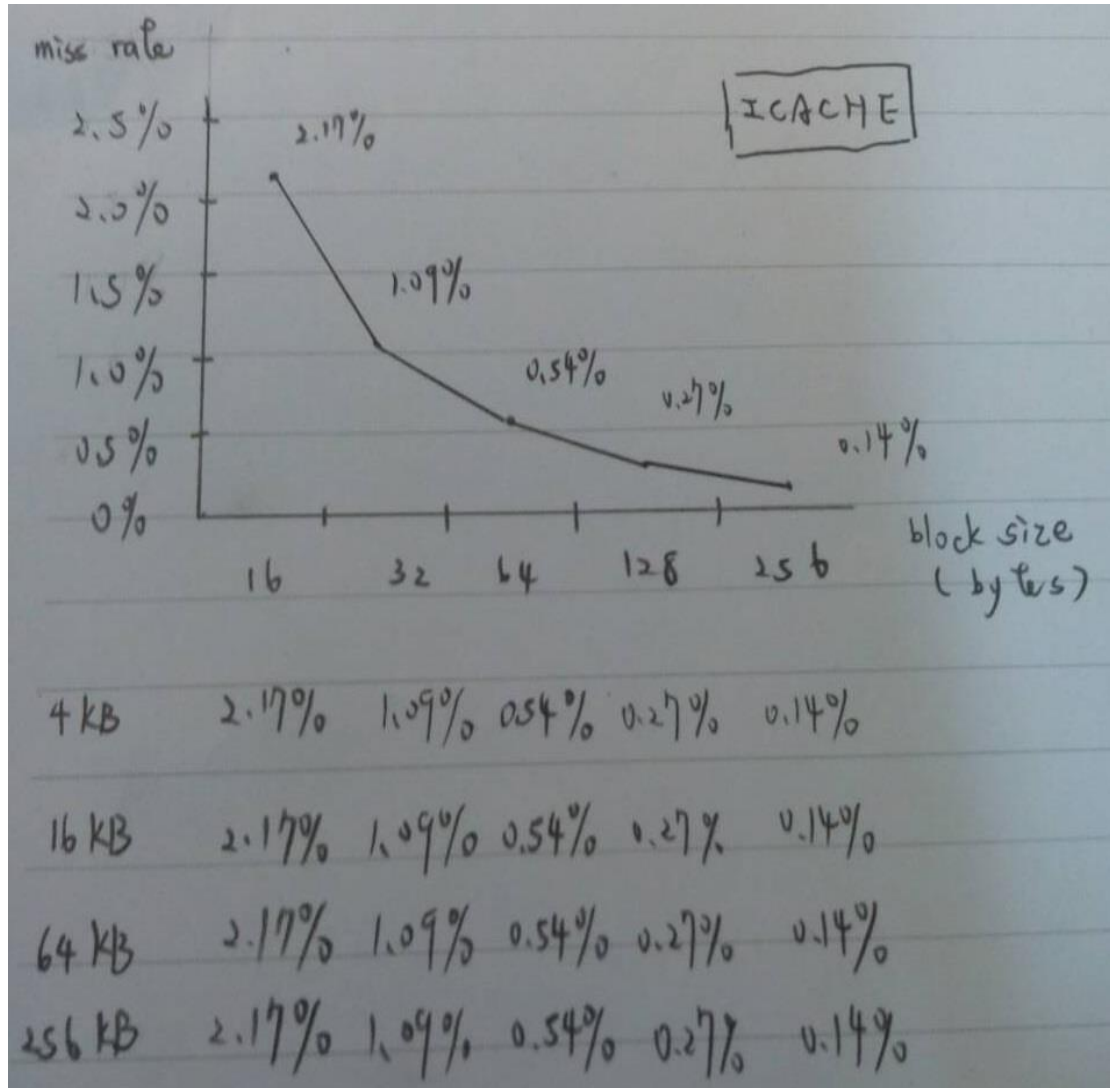 miss rate
ICACHE
2.5%
2.17%
2.0%
1.5%
1.09%
1.0%
0.54%
0.27%
0.5%
0.14%
0%
16 32 64 128 256
block size
(bytes)
4 KB 2.17% 1.09% 0.54% 0.27% 0.14%
16 KB 2.17% 1.09% 0.54% 0.27% 0.14%
64 KB 2.17% 1.09% 0.54% 0.27% 0.14%
256 KB 2.17% 1.09% 0.54% 0.27% 0.14%